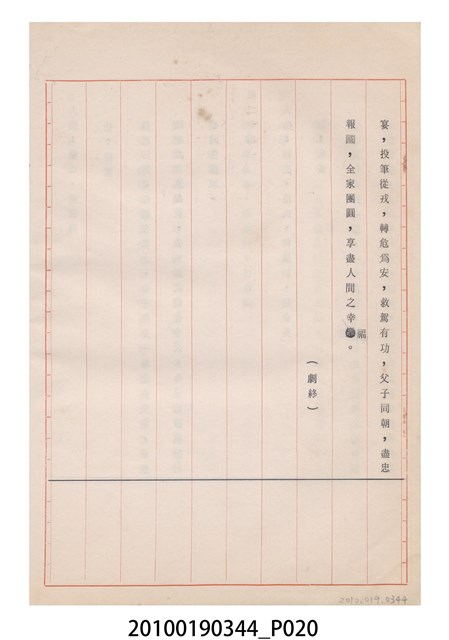 宴，投筆從戎，轉危為安，救駕有功，父子同朝，盡忠
報國，全家團圓，享盡人間之幸福。
（劇終）
2010.019.0344
20100190344_P020